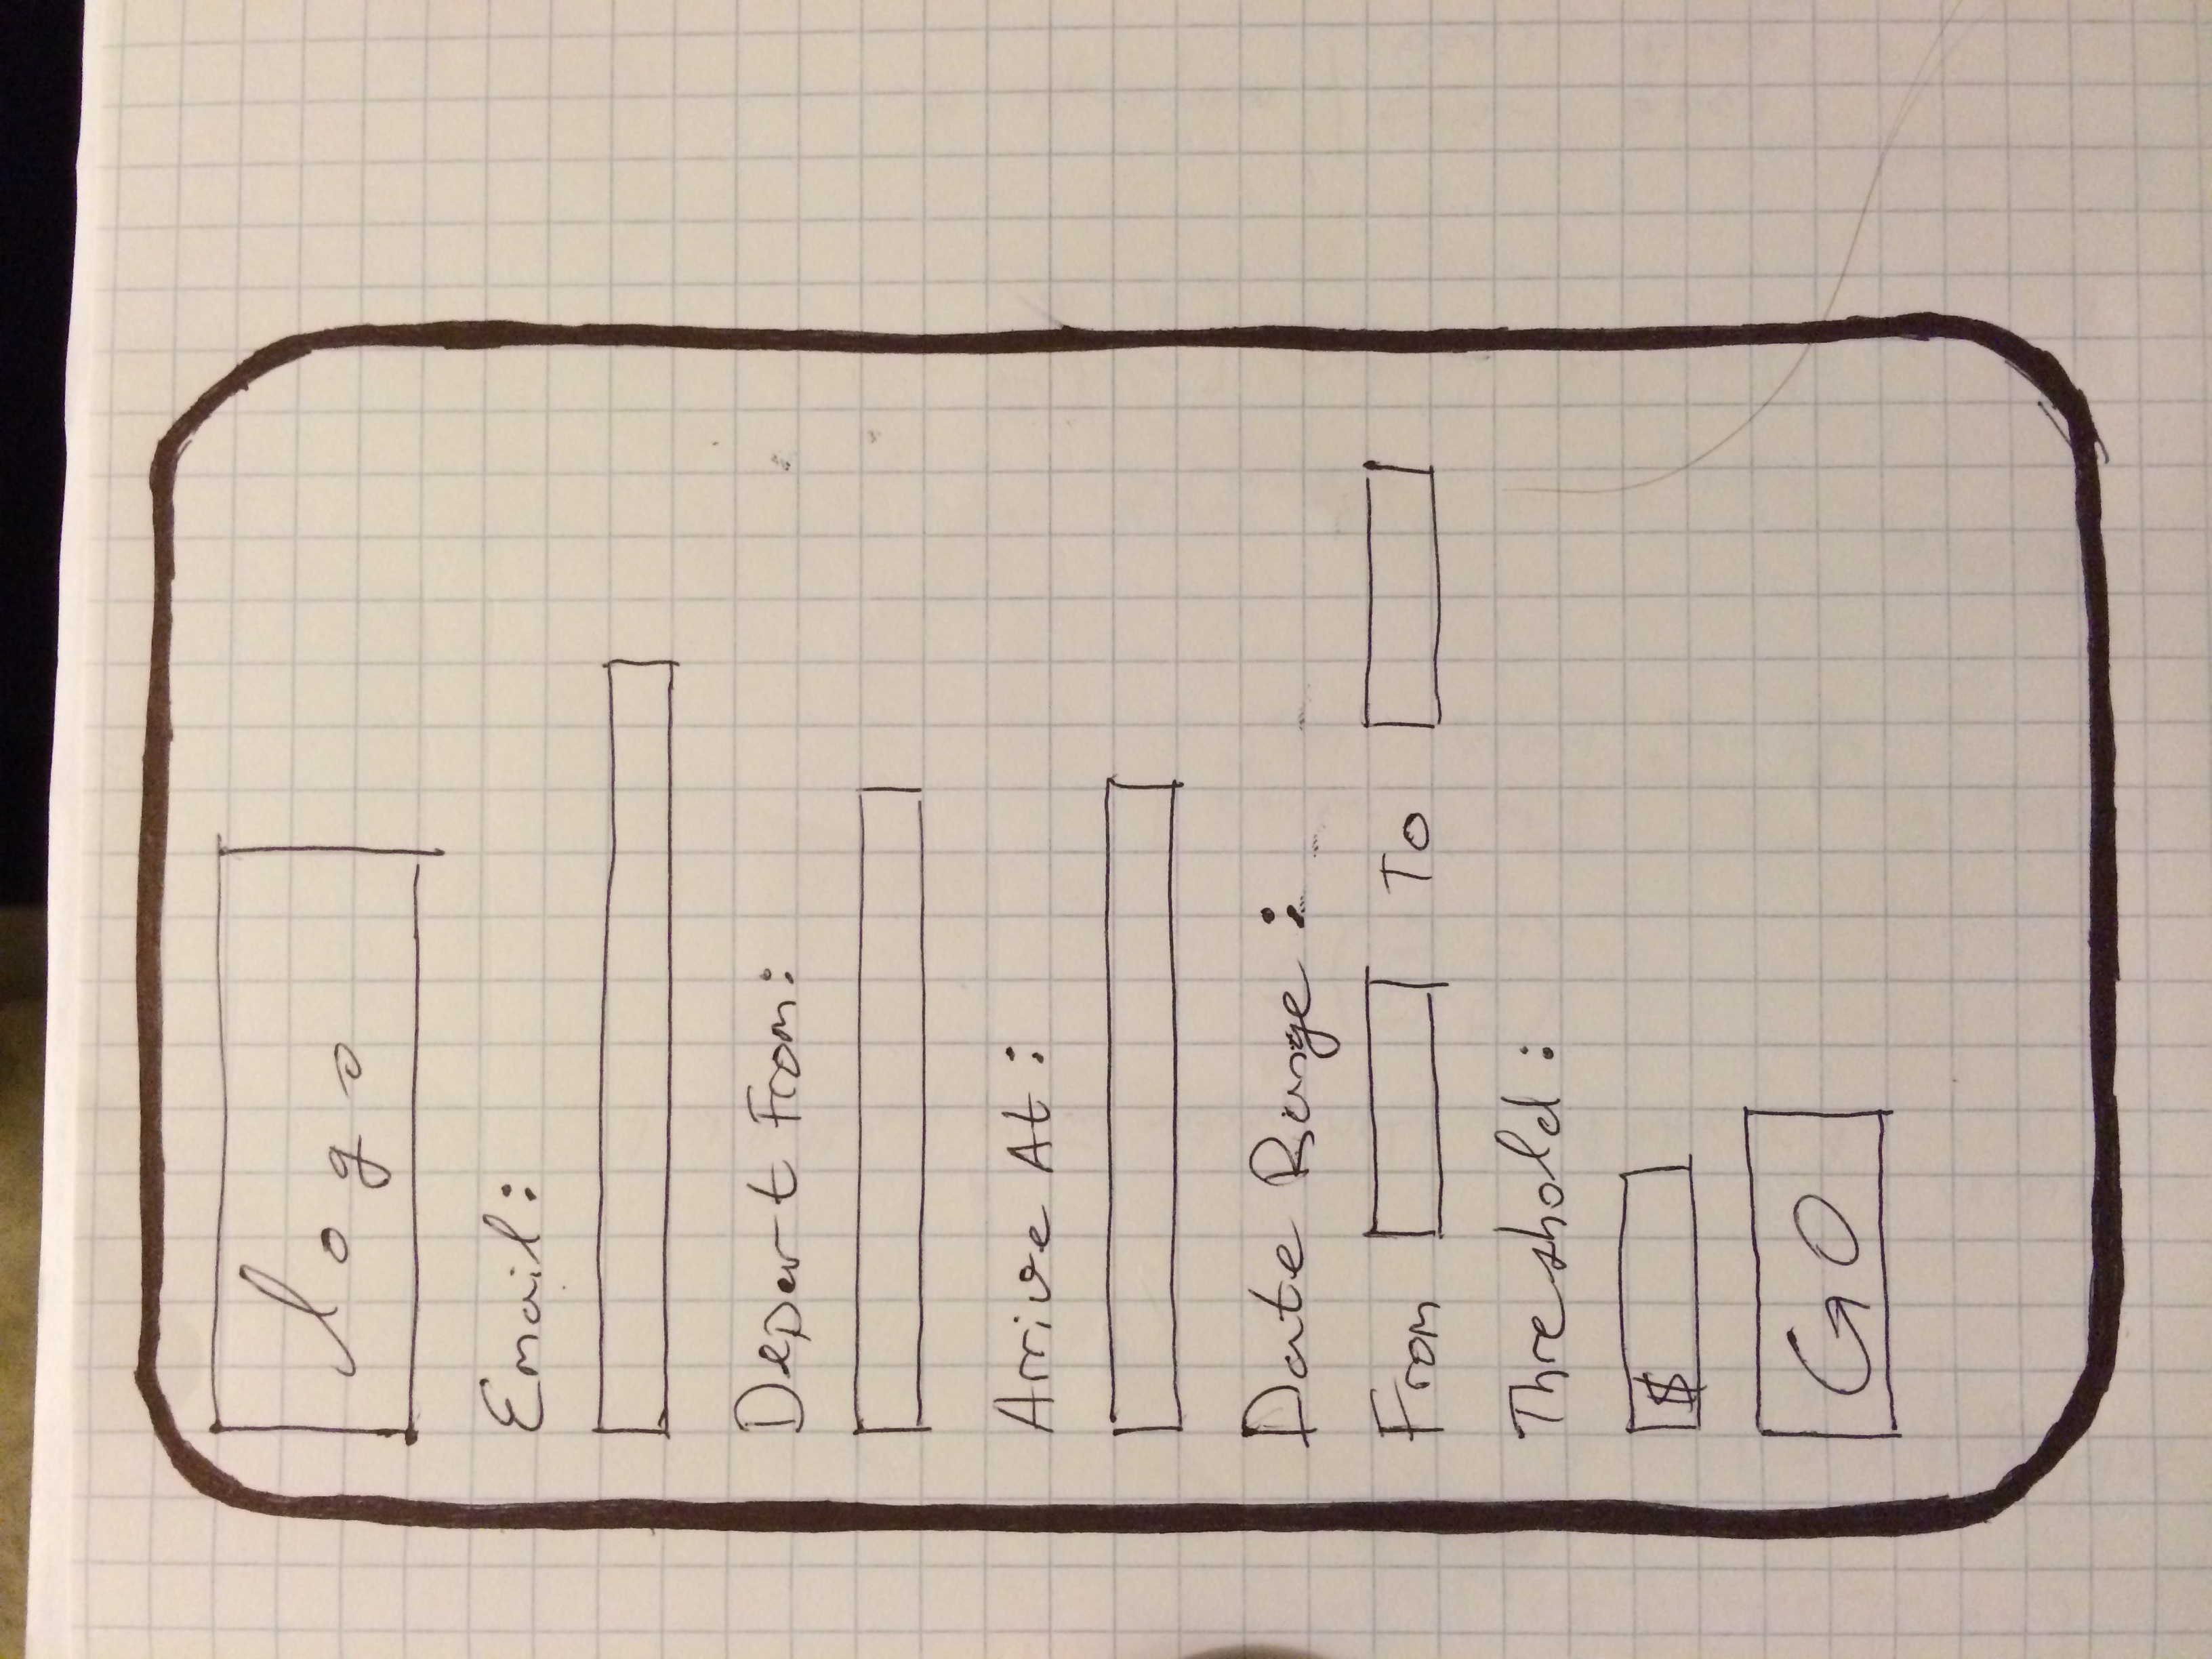 logo
Email:
Depart From:
Arrive At:
Date Range:
From To
Threshold:
$
GO